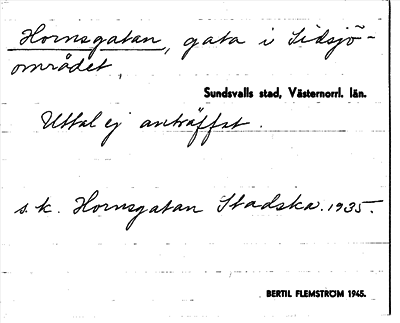 Hornsgatan, gata i Sidsjö-
området,
Sundsvalls stad, Västernorrl. län.
Uttal ej anträffat.
s.k. Hornsgatan Stadska. 1935.
BERTIL FLEMSTRÖM 1945.